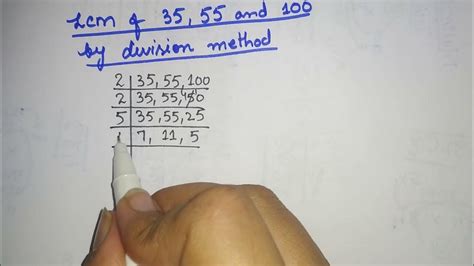 Lcm of 35, 55 and 100
by division method
2 | 35, 55, 100
2 | 35, 55, 50
5 | 35, 55, 25
7, 11, 5